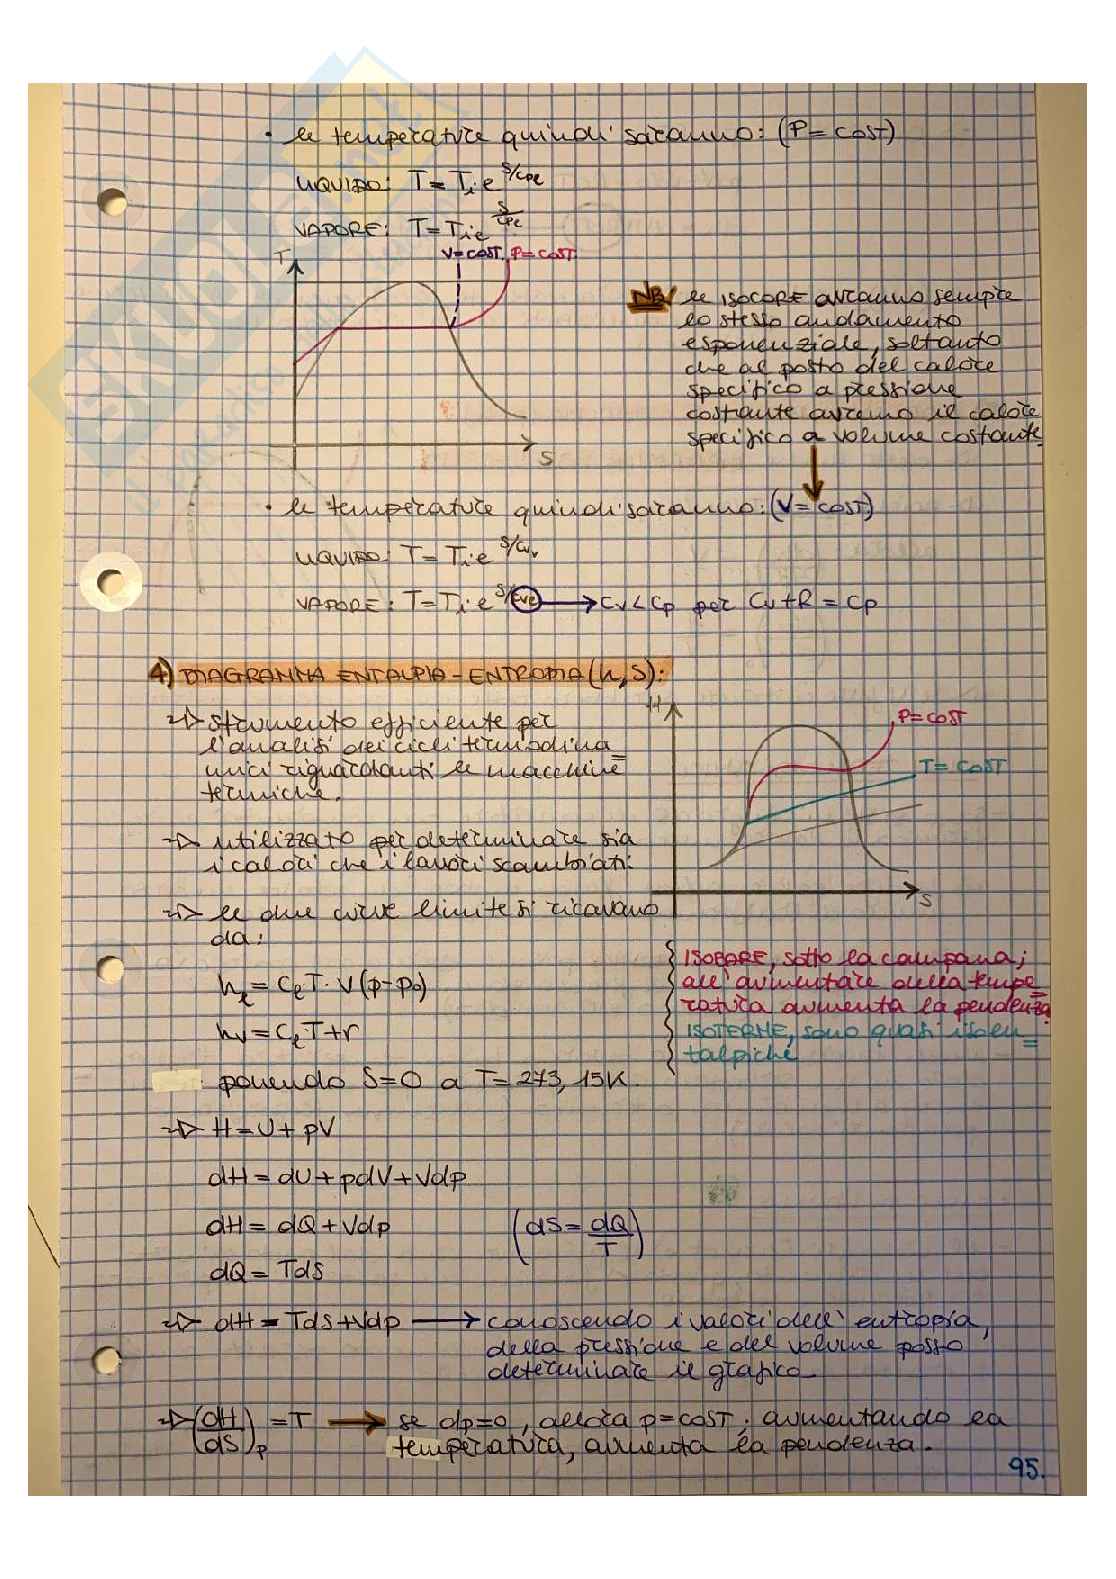 • le temperature quindi saranno: (P = COST)
LIQUIDO: T = Ti e^{s/cpl}
VAPORE: T = Ti e^{s/cpe}
T
V=COST. P=COST.
S
NB le ISOCORE avranno sempre
lo stesso andamento
esponenziale, soltanto
che al posto del calore
specifico a pressione
costante avremo il calore
specifico a volume costante
• le temperature quindi saranno: (V = COST)
LIQUIDO: T = Ti e
VAPORE: T = Ti e → Cv < Cp per Cv + R = Cp
4) DIAGRAMMA ENTALPIA-ENTROPIA (h,S):
-> strumento efficiente per
l'analisi dei cicli termodina=
mici riguardanti le macchine
termiche.
H
P=COST
T=COST
S
-> utilizzato per determinare sia
i calori che i lavori scambiati.
-> le due curve limite si ricavano
da:
hl = Cl T · V (p-p0)
hv = Cl T + r
ponendo S=0 a T= 273,15K.
ISOBARE, sotto la campana;
all'aumentare della tempe=
ratura aumenta la pendenza.
ISOTERME, sono quasi isoen=
talpiche
-> H = U + pV
dH = dU + pdV + Vdp
dH = dQ + Vdp (dS = dQ/T)
dQ = TdS
-> dH = TdS + Vdp → conoscendo i valori dell'entropia,
della pressione e del volume posso
determinare il grafico.
-> (dH/dS)p = T → se dp=0, allora p=COST; aumentando la
temperatura, aumenta la pendenza.
95.